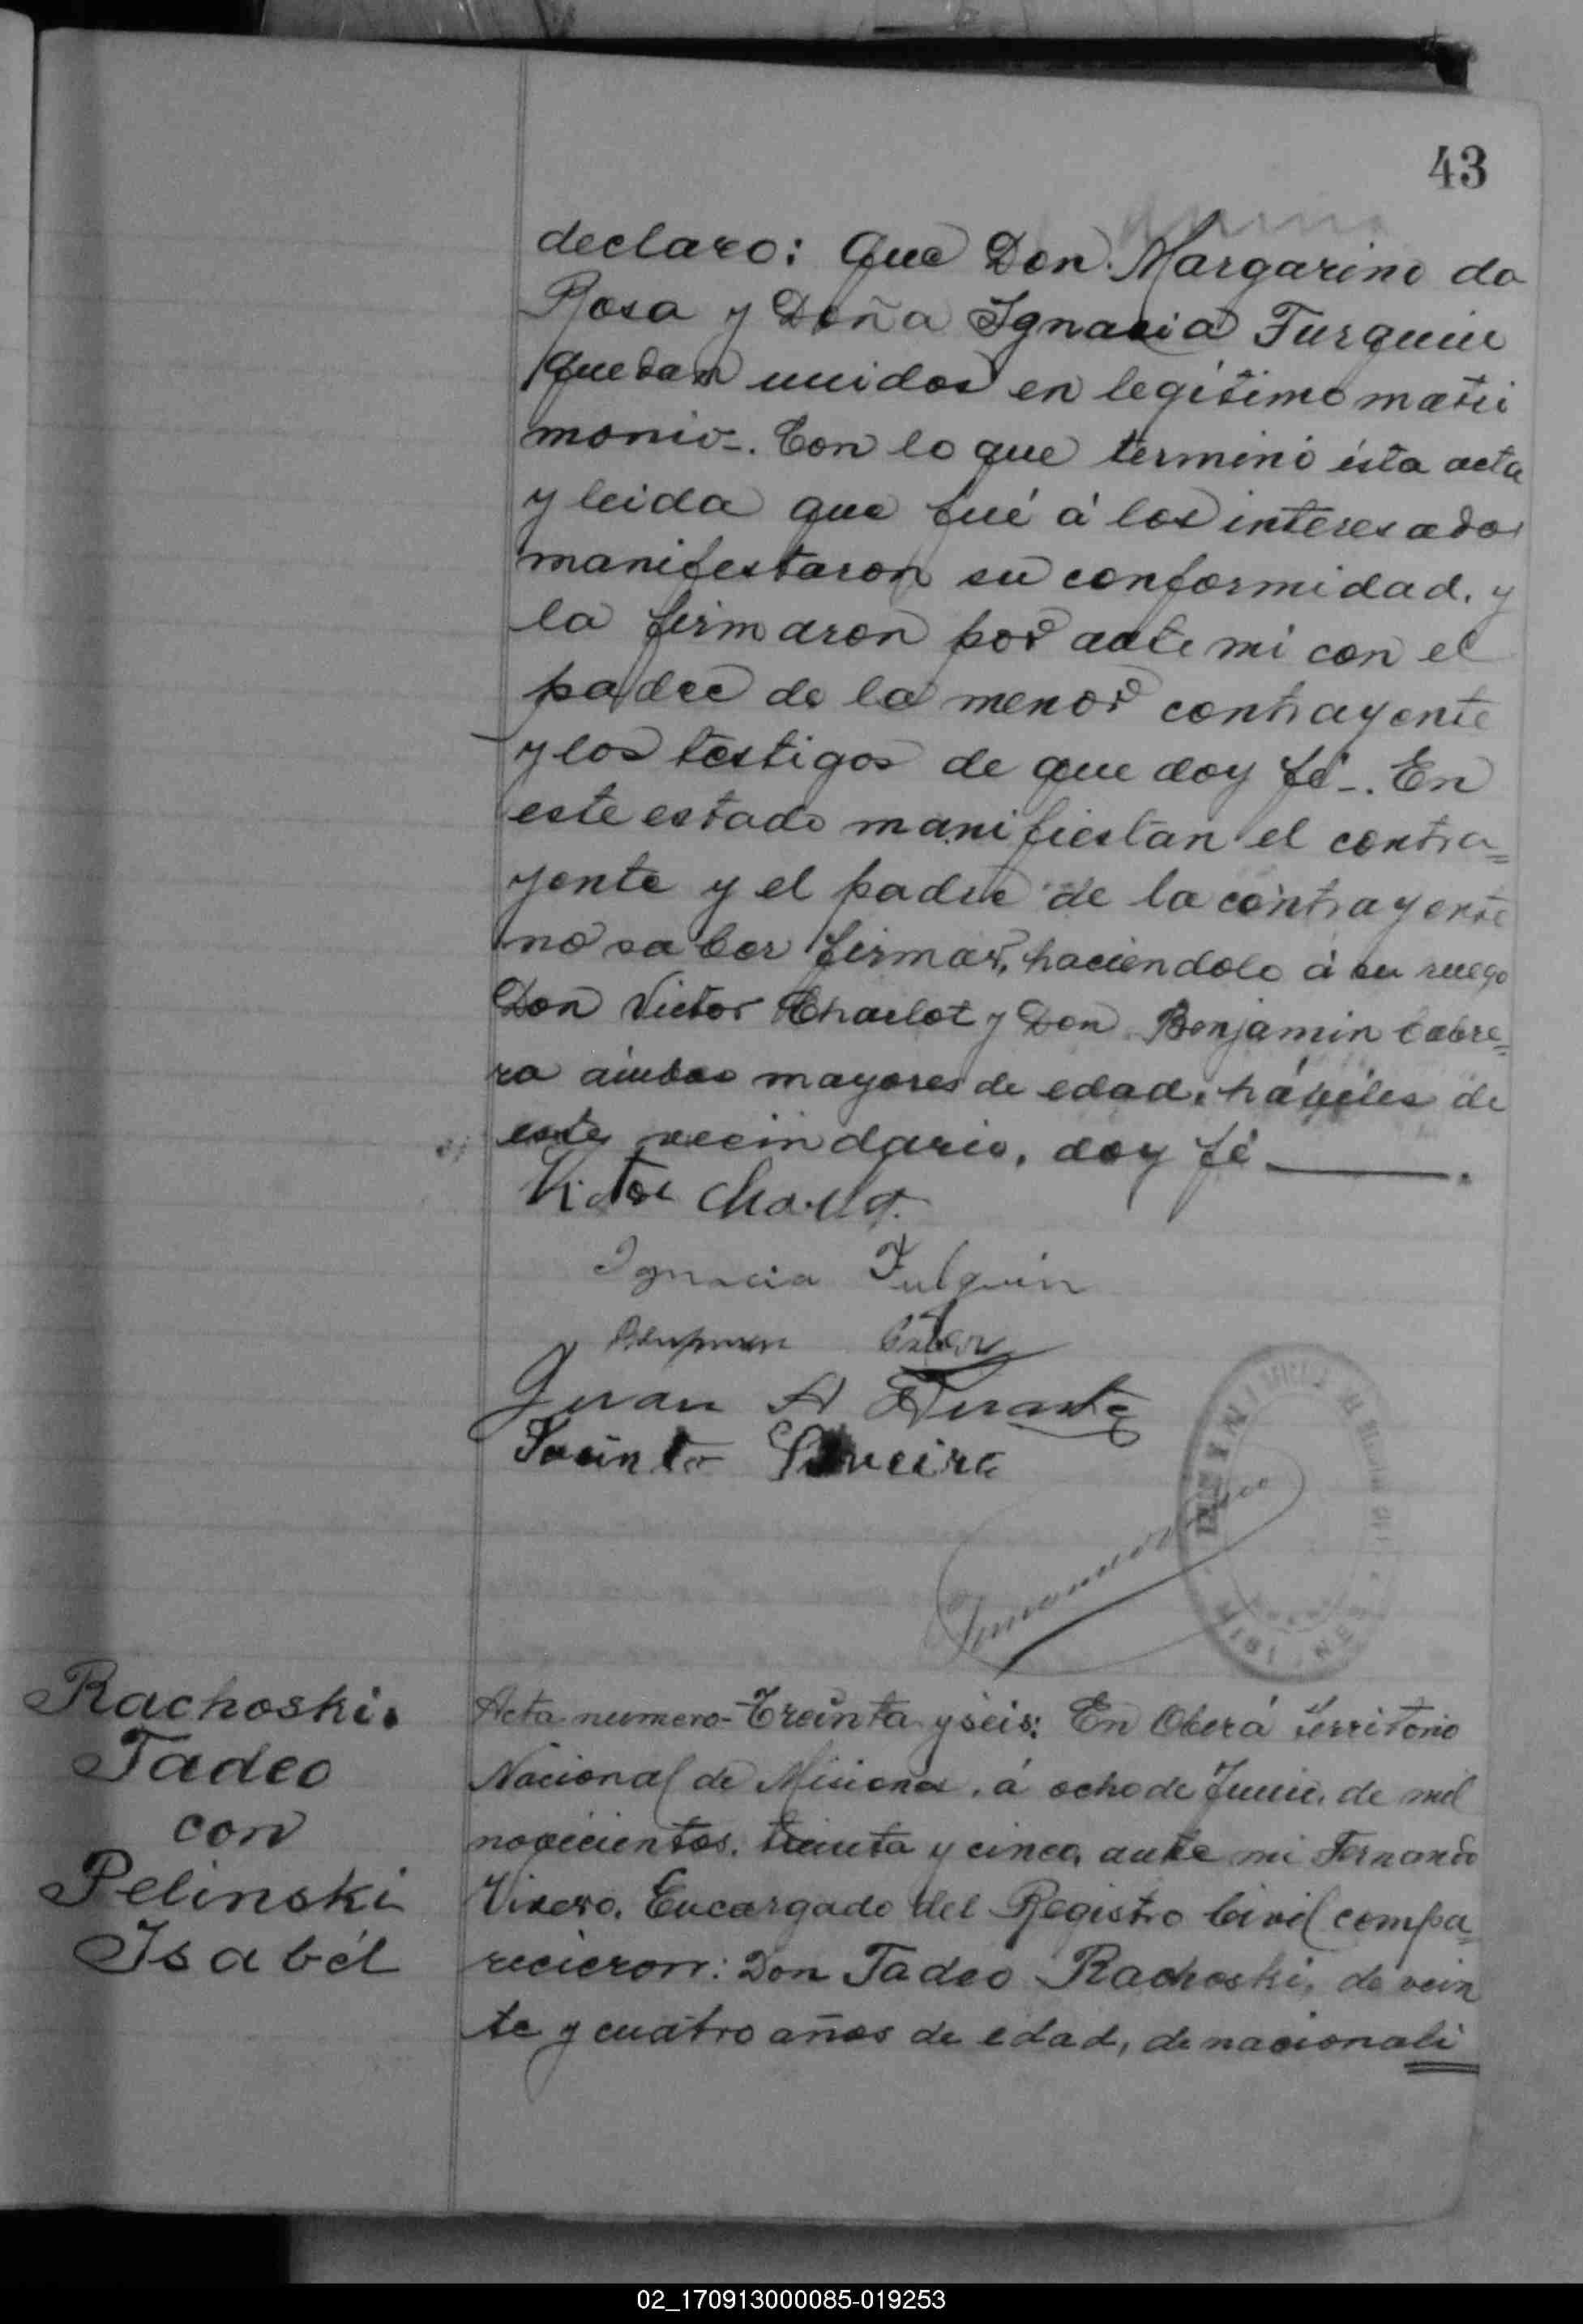 43
declaro: Que Don Margarino da
Rosa y Doña Ignacia Furquin
quedan unidos en legítimo matri
monio-. Con lo que terminó ésta acta
y leida que fué á los interesados
manifestaron su conformidad, y
la firmaron por ante mi con el
padre de la menor contrayente
y los testigos de que doy fé-. En
este estado manifiestan el contra=
yente y el padre de la contrayente
no saber firmar, haciendolo á su ruego
Don Victor Charlot y Don Benjamin Cabre=
ra ámbos mayores de edad, hábiles de
este vecindario, doy fé
Victor Charlot.
Ignacia Fulquin
Juan A
Jacinto
Rachoski.
Tadeo
con
Pelinski
Isabél
Acta numero-Treinta y seis: En Oberá Territorio
Nacional de Misiones, á ocho de Junio, de mil
novecientos, treinta y cinco, ante mi Fernando
Vivero, Encargado del Registro Civil compa=
recieron: Don Tadeo Rachoski, de vein
te y cuatro años de edad, de nacionali
02_170913000085-019253